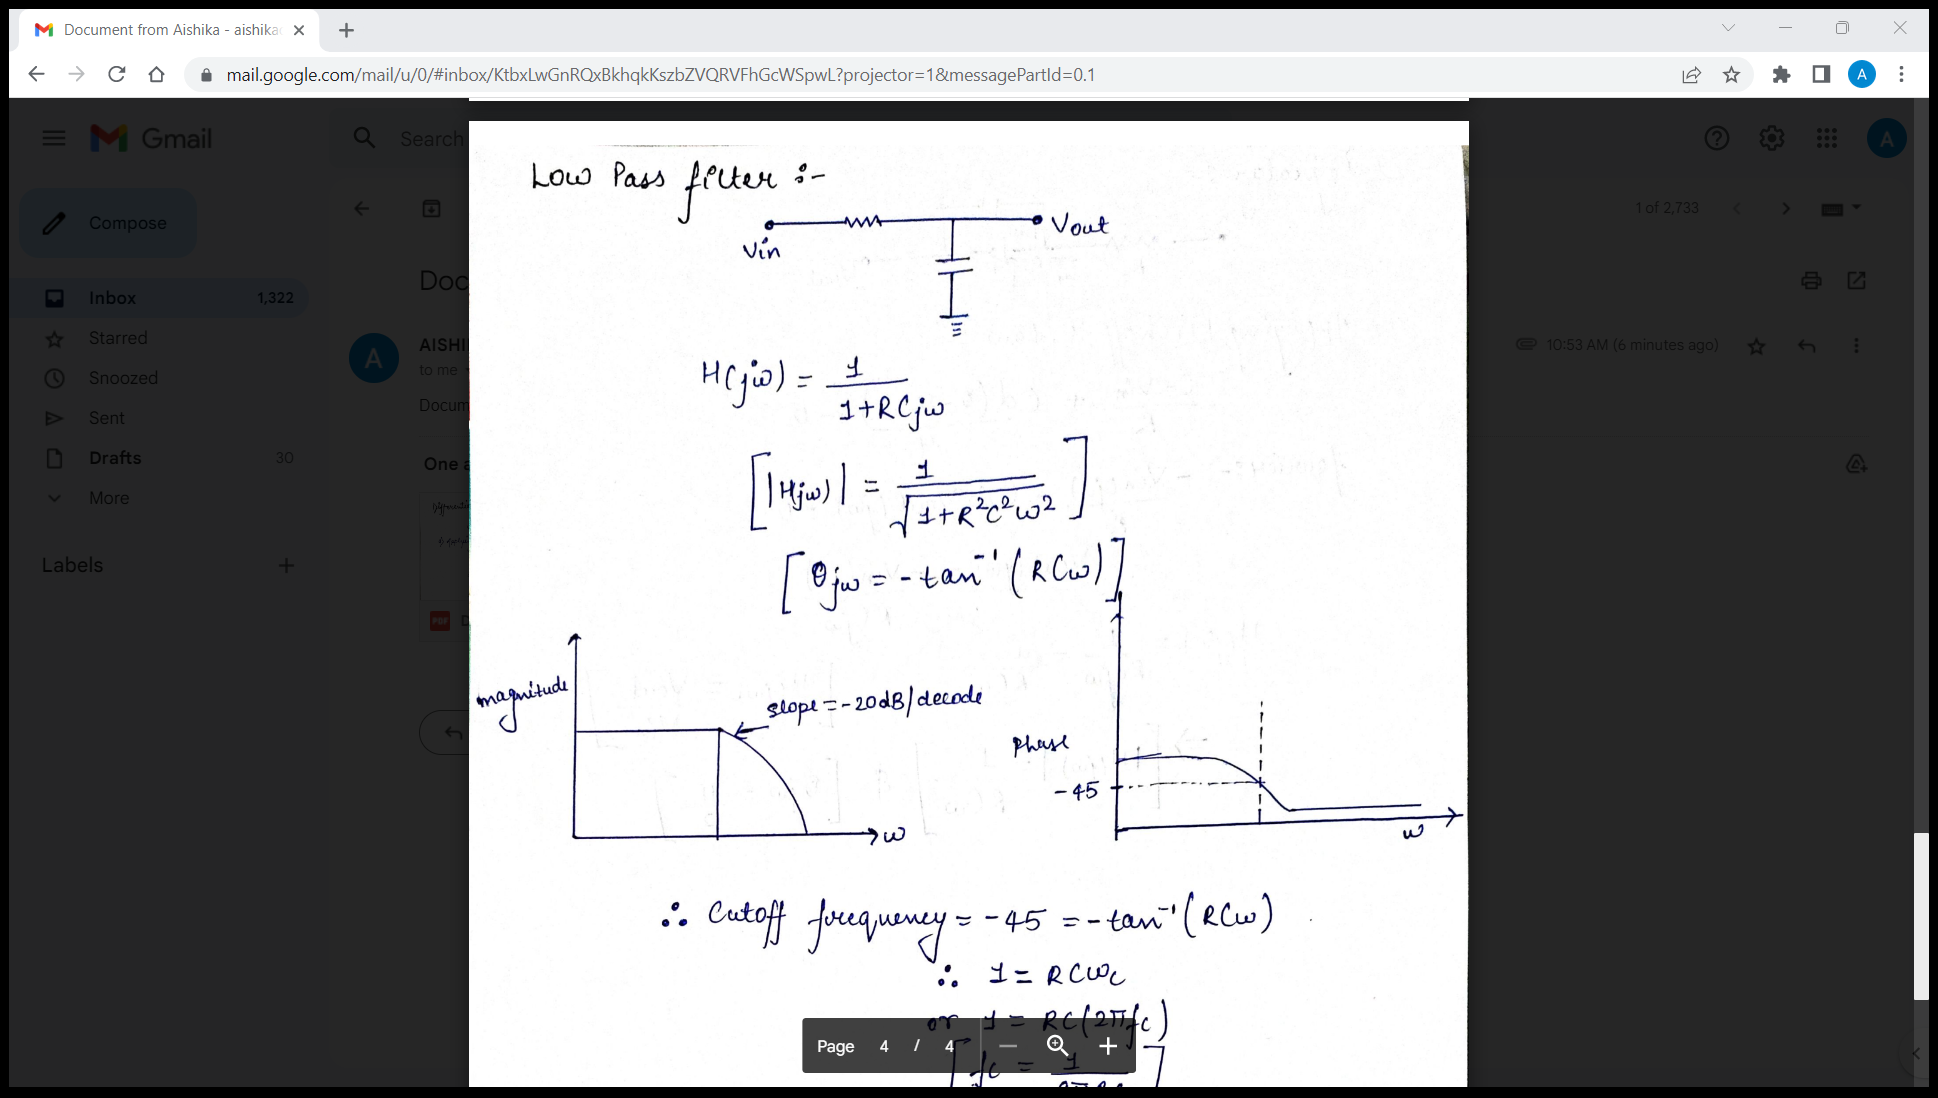 Document from Aishika - aishika
mail.google.com/mail/u/0/#inbox/KtbxLwGnRQxBkhqkKszbZVQRVFhGcWSpwL?projector=1&messagePartId=0.1
A
Gmail
Search
A
Compose
1 of 2,733
Inbox 1,322
Starred
Snoozed
Sent
Drafts 30
More
Labels
Doc
A
AISHI
to me
10:53 AM (6 minutes ago)
Docum
One a
PDF
Low Pass filter :-
Vin
Vout
H(jω) = 1 / 1+RCjω
[|Hjω)| = 1 / √1+R²C²ω²]
[θjω = -tan⁻¹(RCω)]
magnitude
slope = -20dB/decode
ω
Phase
-45
ω
∴ Cutoff frequency = -45 = -tan⁻¹(RCω)
∴ 1 = RCωc
or 1 = RC(2πfc)
Page 4 / 4
[fc = 1